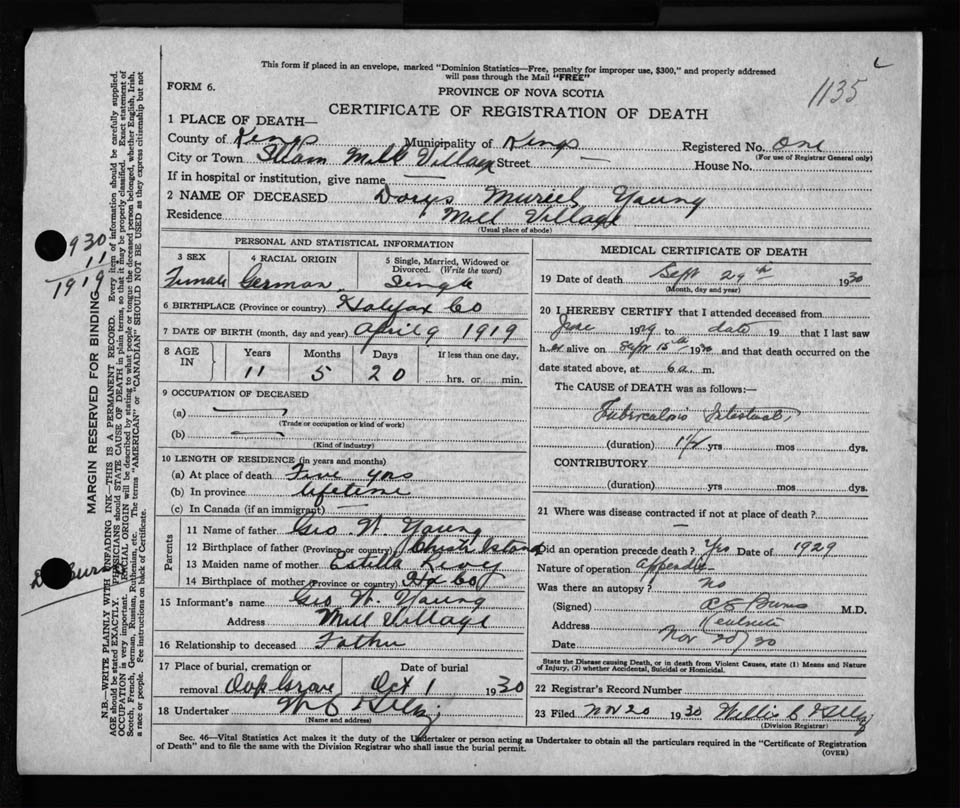 This form if placed in an envelope, marked "Dominion Statistics—Free, penalty for improper use, $300," and properly addressed
will pass through the Mail "FREE"
FORM 6.
PROVINCE OF NOVA SCOTIA
1135
CERTIFICATE OF REGISTRATION OF DEATH
1 PLACE OF DEATH—
County of Kings Municipality of Kings Registered No. One
(For use of Registrar General only)
City or Town Mill Village Street — House No.
If in hospital or institution, give name —
2 NAME OF DECEASED Muriel Young
Residence Mill Village
(Usual place of abode)
PERSONAL AND STATISTICAL INFORMATION
3 SEX 4 RACIAL ORIGIN 5 Single, Married, Widowed or
Divorced. (Write the word)
Female German Single
6 BIRTHPLACE (Province or country) Halifax Co
7 DATE OF BIRTH (month, day and year) April 9 1919
8 AGE IN Years Months Days If less than one day.
11 5 20 hrs. or min.
9 OCCUPATION OF DECEASED
(a) —
(Trade or occupation or kind of work)
(b) —
(Kind of industry)
10 LENGTH OF RESIDENCE (in years and months)
(a) At place of death Five yrs
(b) In province lifetime
(c) In Canada (if an immigrant) —
Parents
11 Name of father Geo W. Young
12 Birthplace of father (Province or country)
13 Maiden name of mother Estella
14 Birthplace of mother (Province or country) Hx Co
15 Informant's name Geo W. Young
Address Mill Village
16 Relationship to deceased Father
17 Place of burial, cremation or Date of burial
removal Oak Grove Oct 1 1930
18 Undertaker
(Name and address)
MEDICAL CERTIFICATE OF DEATH
19 Date of death Sept 29th 1930
(Month, day and year)
20 I HEREBY CERTIFY that I attended deceased from
1929 to date 19 that I last saw
her alive on Sept 15th 1930 and that death occurred on the
date stated above, at 6 a. m.
The CAUSE of DEATH was as follows:—
Tuberculosis Intestinal
(duration) yrs mos dys.
CONTRIBUTORY
(duration) yrs mos dys.
21 Where was disease contracted if not at place of death?
—
Did an operation precede death? Yes Date of 1929
Nature of operation
Was there an autopsy? No
(Signed) M.D.
Address
Date Nov 20/30
State the Disease causing Death, or in death from Violent Causes, state (1) Means and Nature
of Injury, (2) whether Accidental, Suicidal or Homicidal.
22 Registrar's Record Number
23 Filed Nov 20 1930
(Division Registrar)
Sec. 46—Vital Statistics Act makes it the duty of the Undertaker or person acting as Undertaker to obtain all the particulars required in the "Certificate of Registration
of Death" and to file the same with the Division Registrar who shall issue the burial permit.
(OVER)
MARGIN RESERVED FOR BINDING
N.B.—WRITE PLAINLY WITH UNFADING INK—THIS IS A PERMANENT RECORD. Every item of information should be carefully supplied.
AGE should be stated EXACTLY. PHYSICIANS should STATE CAUSE OF DEATH in plain terms, so that it may be properly classified. Exact statement of
OCCUPATION is very important. RACIAL ORIGIN will be described by stating to what people or tongue the deceased person belonged, whether English, Irish,
Scotch, French, German, Russian, Ruthenian, etc. The terms "AMERICAN" or "CANADIAN" SHOULD NOT BE USED as they express citizenship but not
a race or people. See instructions on back of Certificate.
930
11
1919